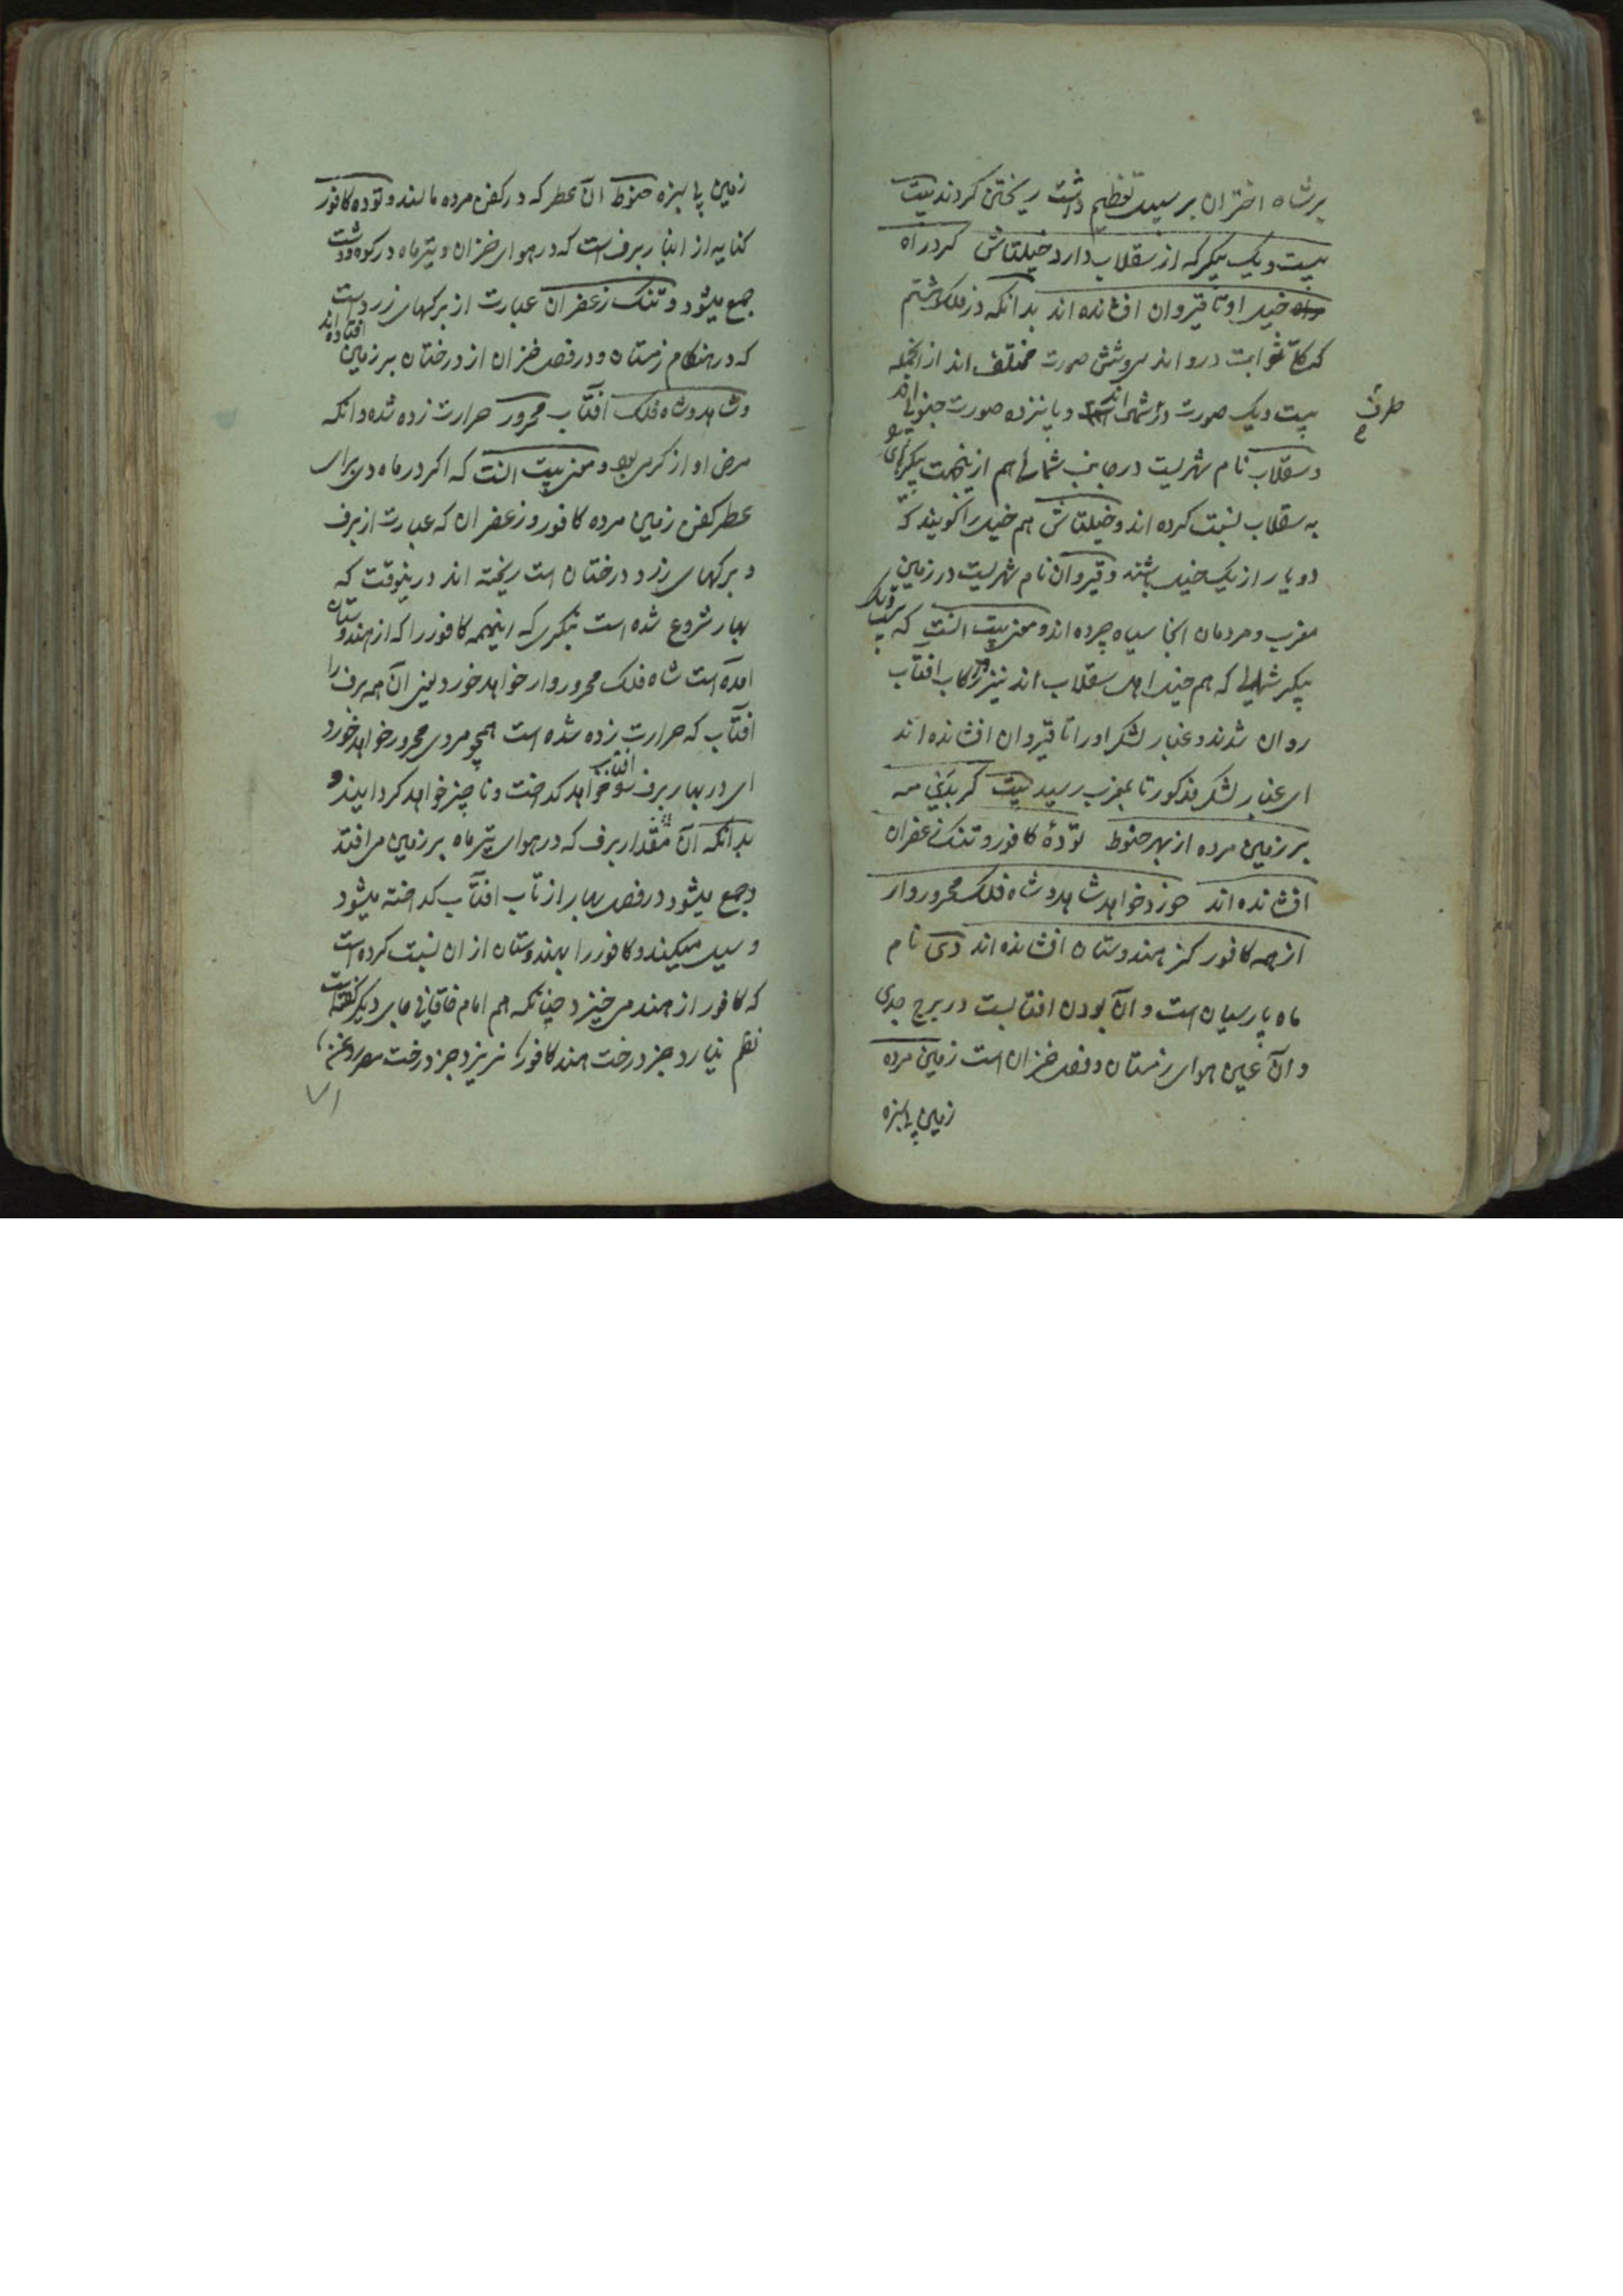 بر شاه اختران بر سبیل تعظیم داشت ریختن کردند بیت
بیست و یک پیکر که از سقلاب دارد خیلتاش گرد راه
راه خیل او تا قیروان افشانده اند بدانکه در فلک هشتم
که کل ثوابت درو اند سی و شش صورت مختلف اند از انجمله
بیست و یک صورت در شمال اند و پانزده صورت جنوبی اند
طرف
و سقلاب نام شهریست در جانب شمال هم ازینجهت پیکرهای
به سقلاب نسبت کرده اند و خیلتاش هم خیل را گویند که
دو یار از یک خیل باشند و قیروان نام شهریست در زمین
مغرب و مردمان انجا سیاه چرده اند و معنی بیت انست که بیست و یک
پیکر شمالی که هم خیل اهل سقلاب اند نیز در رکاب افتاب
روان شدند و غبار لشکر او را تا قیروان افشانده اند
ای غبار لشکر مذکور تا بمغرب رسید بیت گر بدی مه
بر زمین مرده از بهر حنوط تودهٔ کافور و تنگ زعفران
افشانده اند خورد خواهد شاهد و شاه فلک محروروار
ان همه کافور کز هندوستان افشانده اند دی نام
ماه پارسیان است و آن بودن افتابست در برج جدی
و آن عین هوای زمستان و فصل خزان است زمین مرده
زمین پا سبزه
زمین پا سبزه حنوط آن عطر که در کفن مرده مالند و توده کافور
کنایه از انبار برف است که در هوای خزان و تیر ماه در کوه و دشت
جمع میشود و تنگ زعفران عبارت از برگهای زرد است
که در هنگام زمستان و در فصل خزان از درختان بر زمین افتاده اند
و شاهد و شاه فلک افتاب محرور حرارت زده شده و آنکه
مرض او از گرمی بود و معنی بیت انست که اگر در ماه دی برای
عطر کفن زمین مرده کافور و زعفران که عبارت از برف
و برگهای زرد درختان است ریخته اند درینوقت که
بهار شروع شده است بنگری که اینهمه کافور را که از هندوستان
امده است شاه فلک محروروار خواهد خورد یعنی آن همه برف را
افتاب که حرارت زده شده است همچو مردی محرور خواهد خورد
ای در بهار برف را افتاب خواهد گداخت و ناچیز خواهد گردانید و
بدانکه آن مقدار برف که در هوای تیر ماه بر زمین می افتد
و جمع میشود در فصل بهار از تاب افتاب گداخته میشود
و سیل میکند و کافور را بهندوستان از ان نسبت کرده است
که کافور از هند می خیزد چنانکه هم امام خاقانی جای دیگر گفته است
نظم نیارد جز درخت هند کافور نریزد جز درخت مصر روغن
۷۱